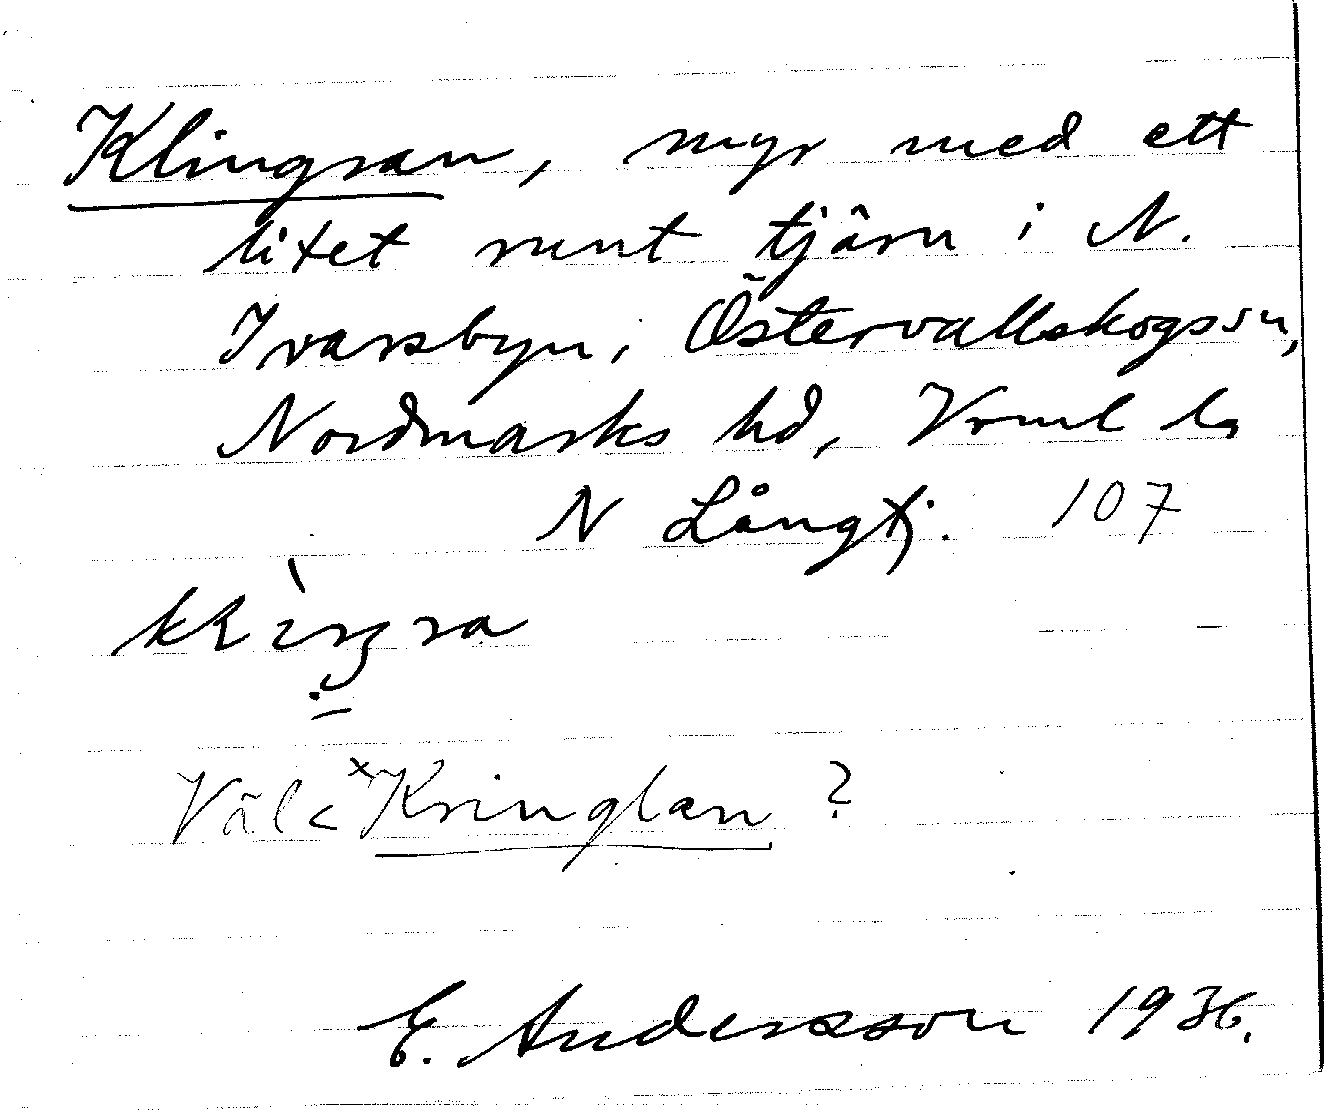 Klingran, myr med ett
litet runt tjärn i N.
Ivarsbyn, Östervallskogs sn,
Nordmarks hd, Vrml
N Långtj. 107
Väl < *Kringlan ?
E. Andersson 1936.